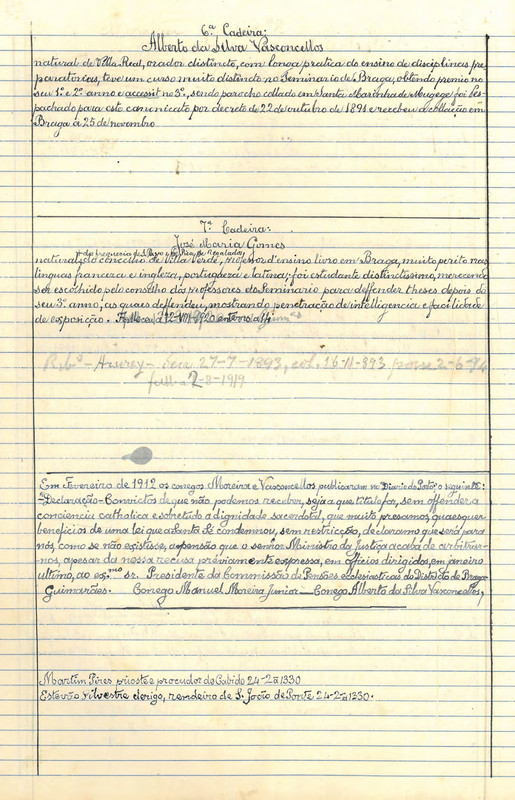 6ª Cadeira:
Alberto da Silva Vasconcellos
natural de Villa Real, orador distincto, com longa pratica do ensino de disciplinas pre-
paratorias, teve um curso muito distincto no Seminario de Braga, obtendo premio no
seu 1º e 2º anno e accessit no 3º, sendo parocho collado em Santa Marinha de Mougege foi des-
pachado para este canonicato por decreto de 22 de outubro de 1891 e recebeu a collação em
Braga a 25 de novembro
7ª Cadeira:
José Maria Gomes
+ da freguesia de S. Payo e
natural + do concelho de Villa Verde, professor d'ensino livre em Braga, muito perito nas
linguas franceza e ingleza, portugueza e latina; foi estudante distinctissimo, merecendo
ser escolhido pelo conselho dos professores do Seminario para deffender theses depois do
seu 3º anno, as quaes defendeu, mostrando penetração de intelligencia e facilidade
de exposição.
27-7-1893, col. 16-11-893, posse
fall. a 2-8-1919
Em Fevereiro de 1912 os conegos Moreira e Vasconcellos publicaram no Diario do Porto o seguinte:
"Declaração-Convictos de que não podemos receber, seja a que titulo for, sem offender a
conciencia catholica e sobretudo a dignidade sacerdotal, que muito presamos, quaesquer
beneficios de uma lei que a Santa Sé condemnou, sem restricção, declaramos que será para
nós, como se não existisse, a pensão que o senhor Ministro da Justiça acaba de arbitrar-
nos, apesar da nossa recusa préviamente expressa, em officios dirigidos, em janeiro
ultimo, ao exmo sr. Presidente da Commissão de Pensões ecclesiasticas do Districto de Braga
Guimarães. Conego Manuel Moreira Junior — Conego Alberto da Silva Vasconcellos,
Martim Pires prioste e procudor do Cabido 24-2º-1330
Estevão Silvestre clerigo, rendeiro de S. João de Ponte 24-2º-1330.